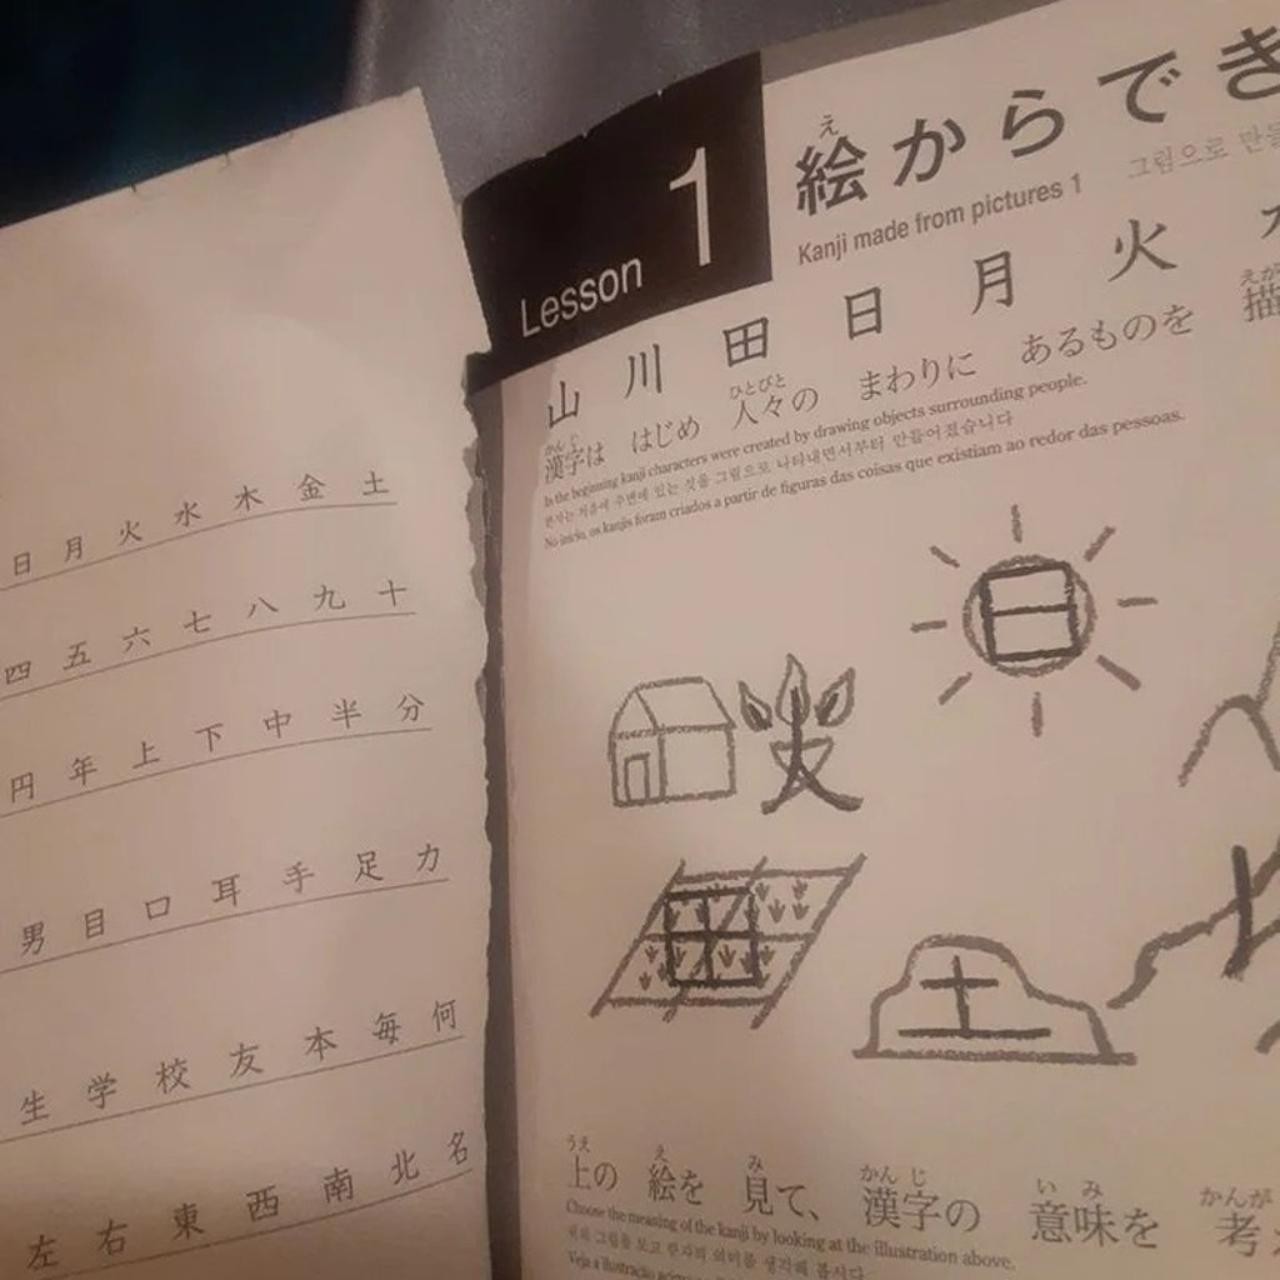 日 月 火 水 木 金 土
四 五 六 七 八 九 十
円 年 上 下 中 半 分
男 目 口 耳 手 足 力
生 学 校 友 本 毎 何
左 右 東 西 南 北 名
Lesson 1
え
絵からでき
Kanji made from pictures 1 그림으로 만들
山 川 田 日 月 火
かんじ ひとびと えが
漢字は はじめ 人々の まわりに あるものを 描
In the beginning kanji characters were created by drawing objects surrounding people.
한자는 처음에 주변에 있는 것을 그림으로 나타내면서부터 만들어졌습니다
No início, os kanjis foram criados a partir de figuras das coisas que existiam ao redor das pessoas.
日
田
土
うえ え み かんじ いみ かんが
上の 絵を 見て、 漢字の 意味を 考
Choose the meaning of the kanji by looking at the illustration above.
위의 그림을 보고 한자의 의미를 생각해 봅시다
Veja a ilustração